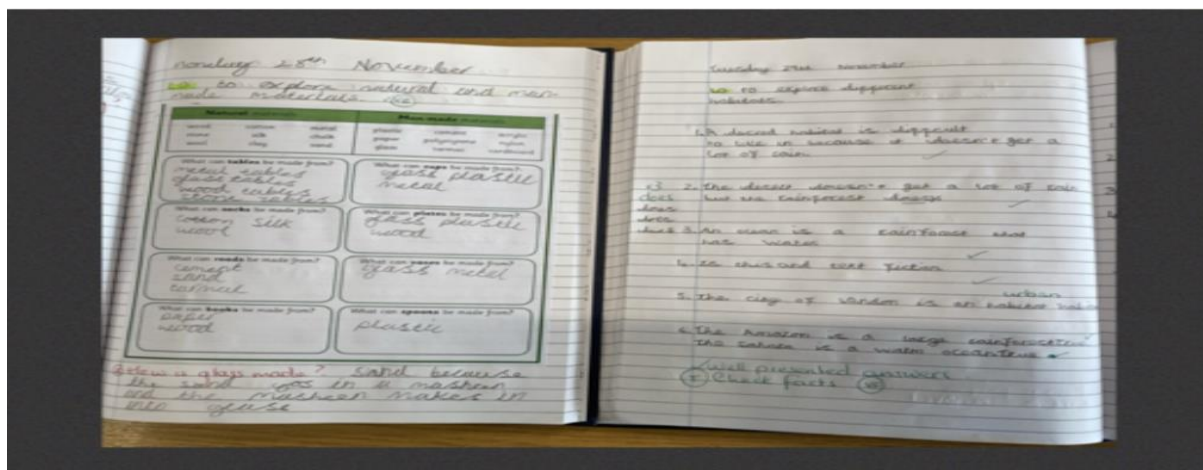 monday 28th November
LO to explore natural and man-
made materials
Natural materials
Man-made materials
wood cotton metal
stone silk chalk
wool clay sand
plastic cement acrylic
paper polypropene nylon
glass tarmac cardboard
What can tables be made from?
metal tables
glass tables
wood tables
stone tables
What can cups be made from?
glass plastic
metal
What can socks be made from?
cotton silk
wool
What can plates be made from?
glass plastic
wood
What can roads be made from?
cement
sand
tarmac
What can vases be made from?
glass metal
What can books be made from?
paper
wood
What can spoons be made from?
plastic
How is glass made? Sand because
the sand gos in a masheen
and the masheen makes in
into glass
Tuesday 29th November
LO to explore different
habitats.
1. A desert habitat is difficult
to live in because it doesn't get a
lot of rain
x3
does
does
does
2. The desert doesn't get a lot of rain
but the rainforest does
3. An ocean is a rainforest that
has water
4. Is this and text fiction
urban
5. The city of London is an habitat
6. The Amazon is a large rainforest true
The Sahara is a warm ocean true
Well presented answers
Check facts